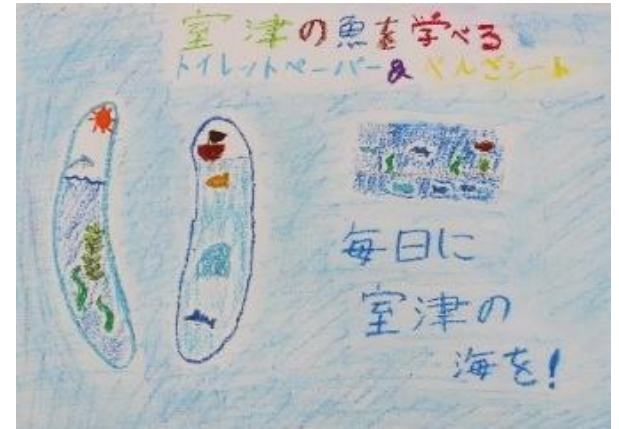 室津の魚を学べる
トイレットペーパー&べんざシート
毎日に
室津の
海を!